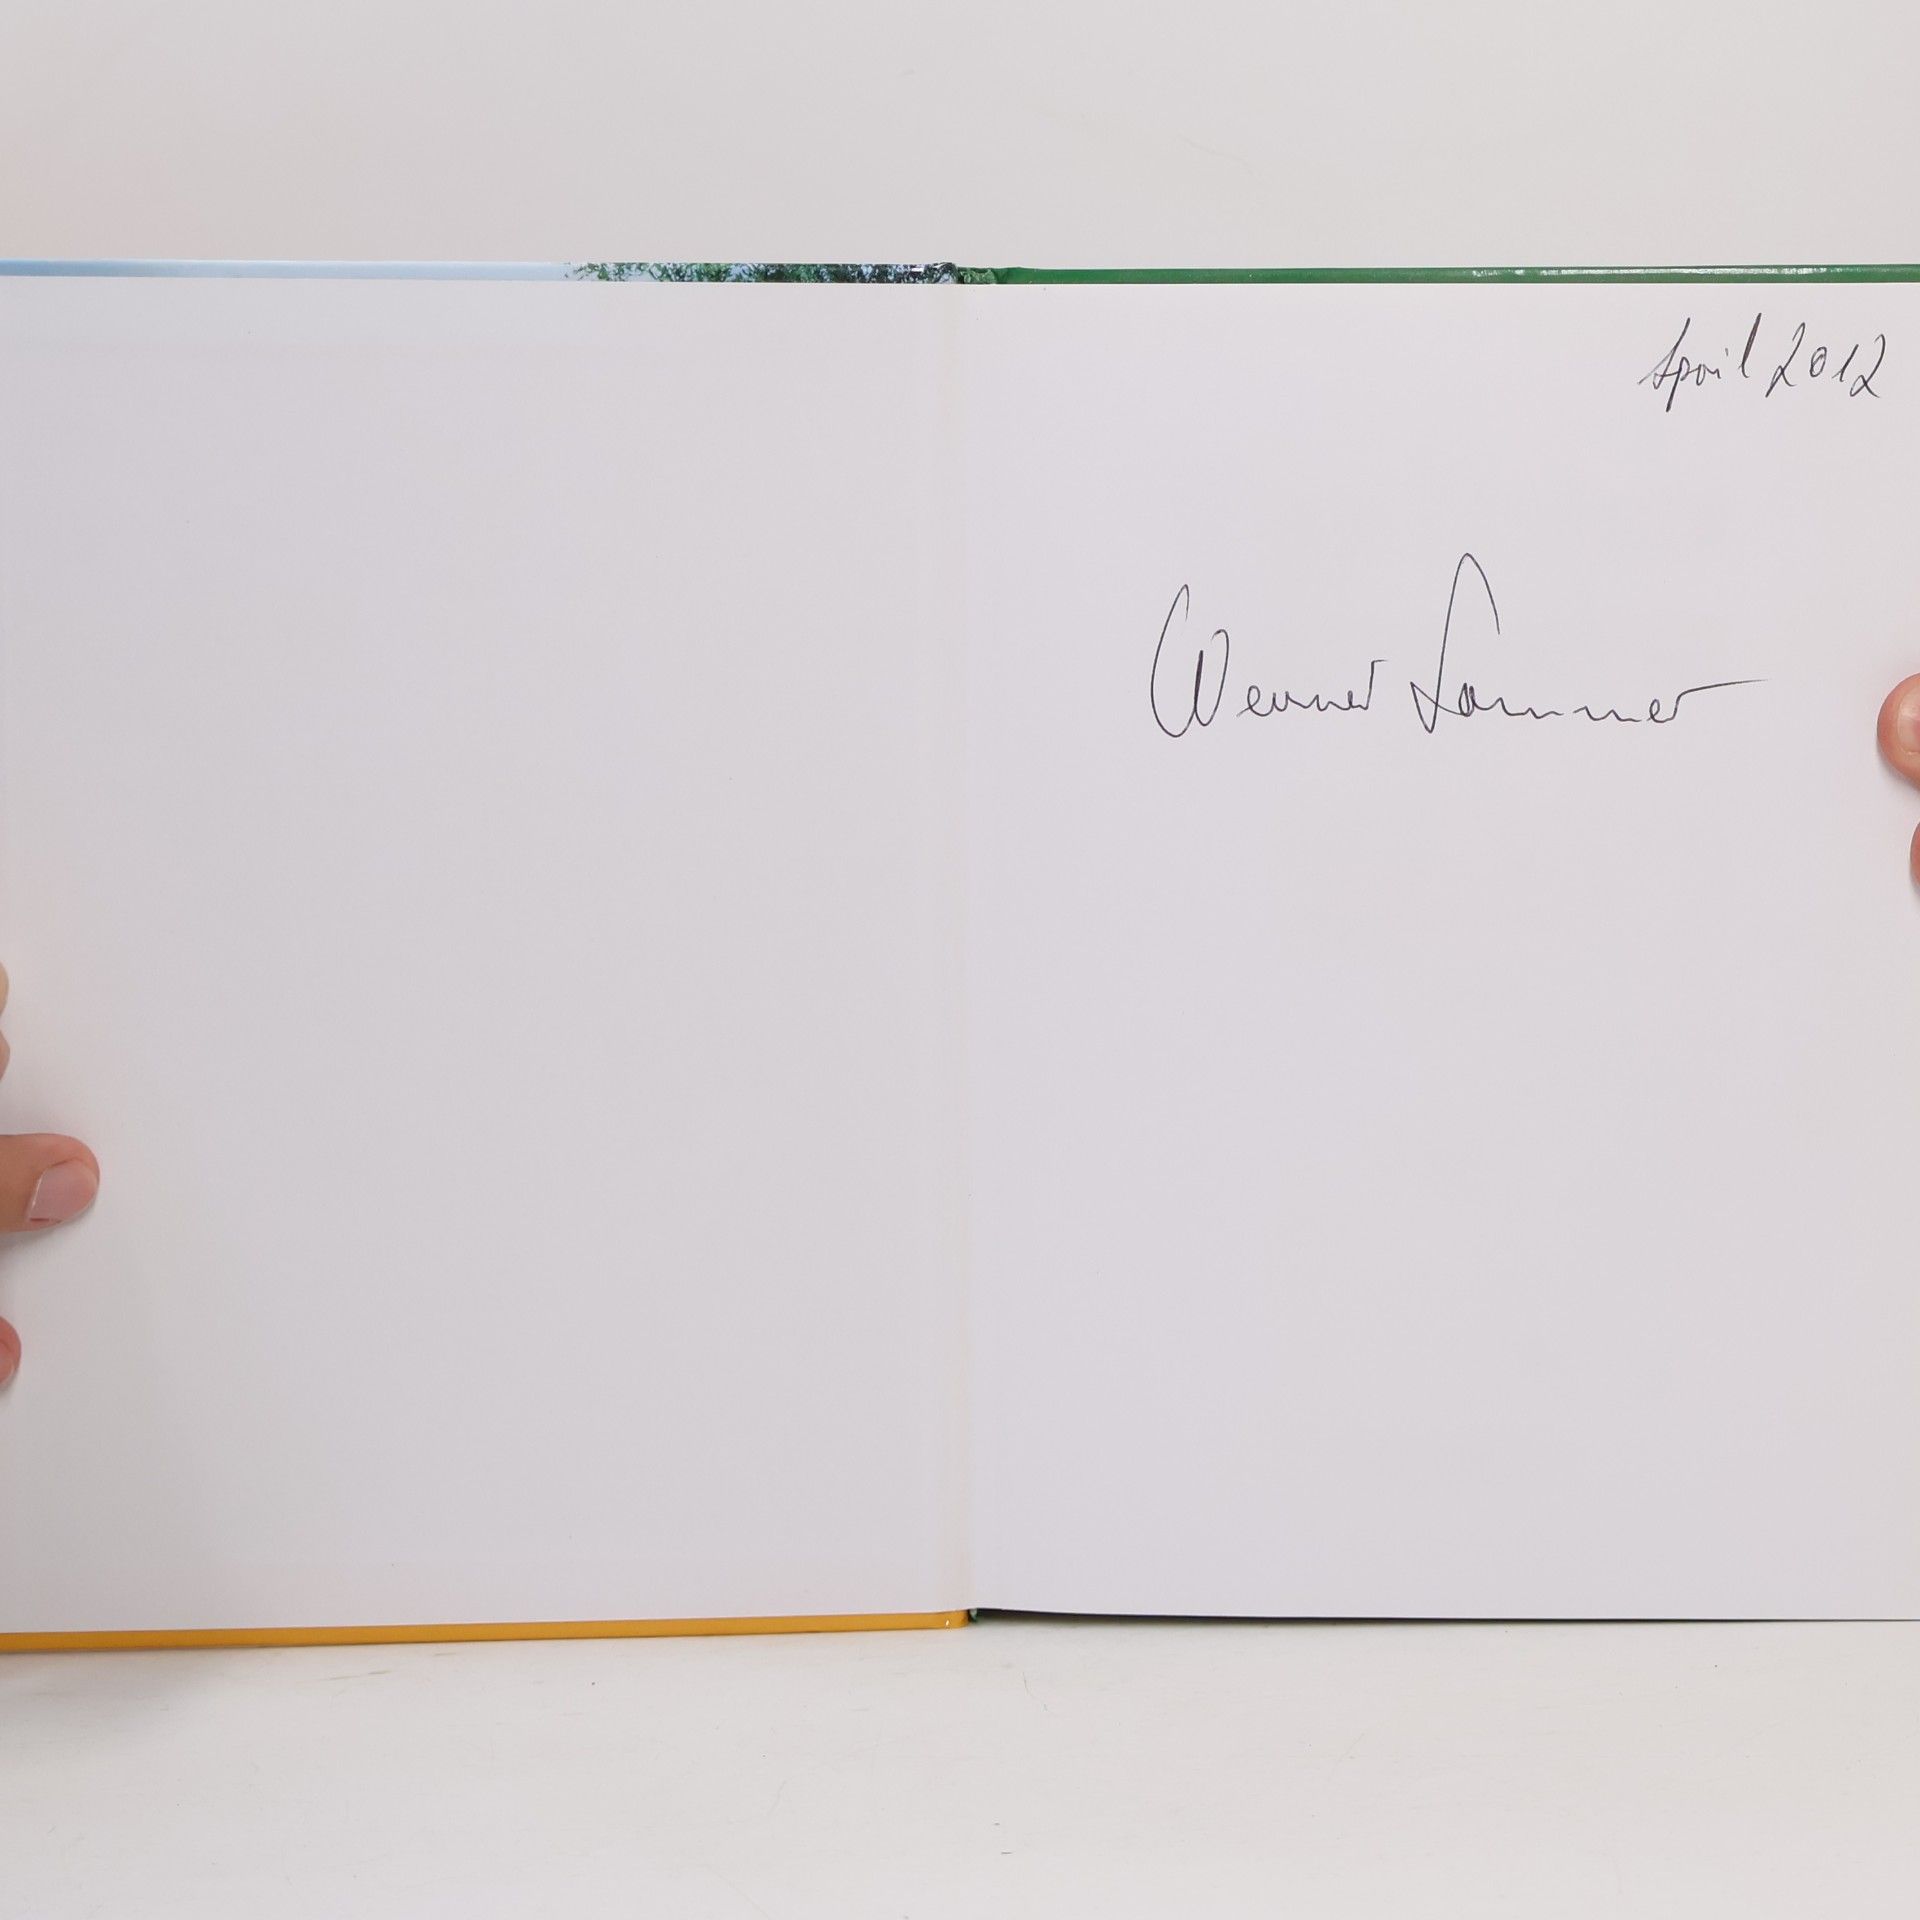 April 2012
Werner Lammer